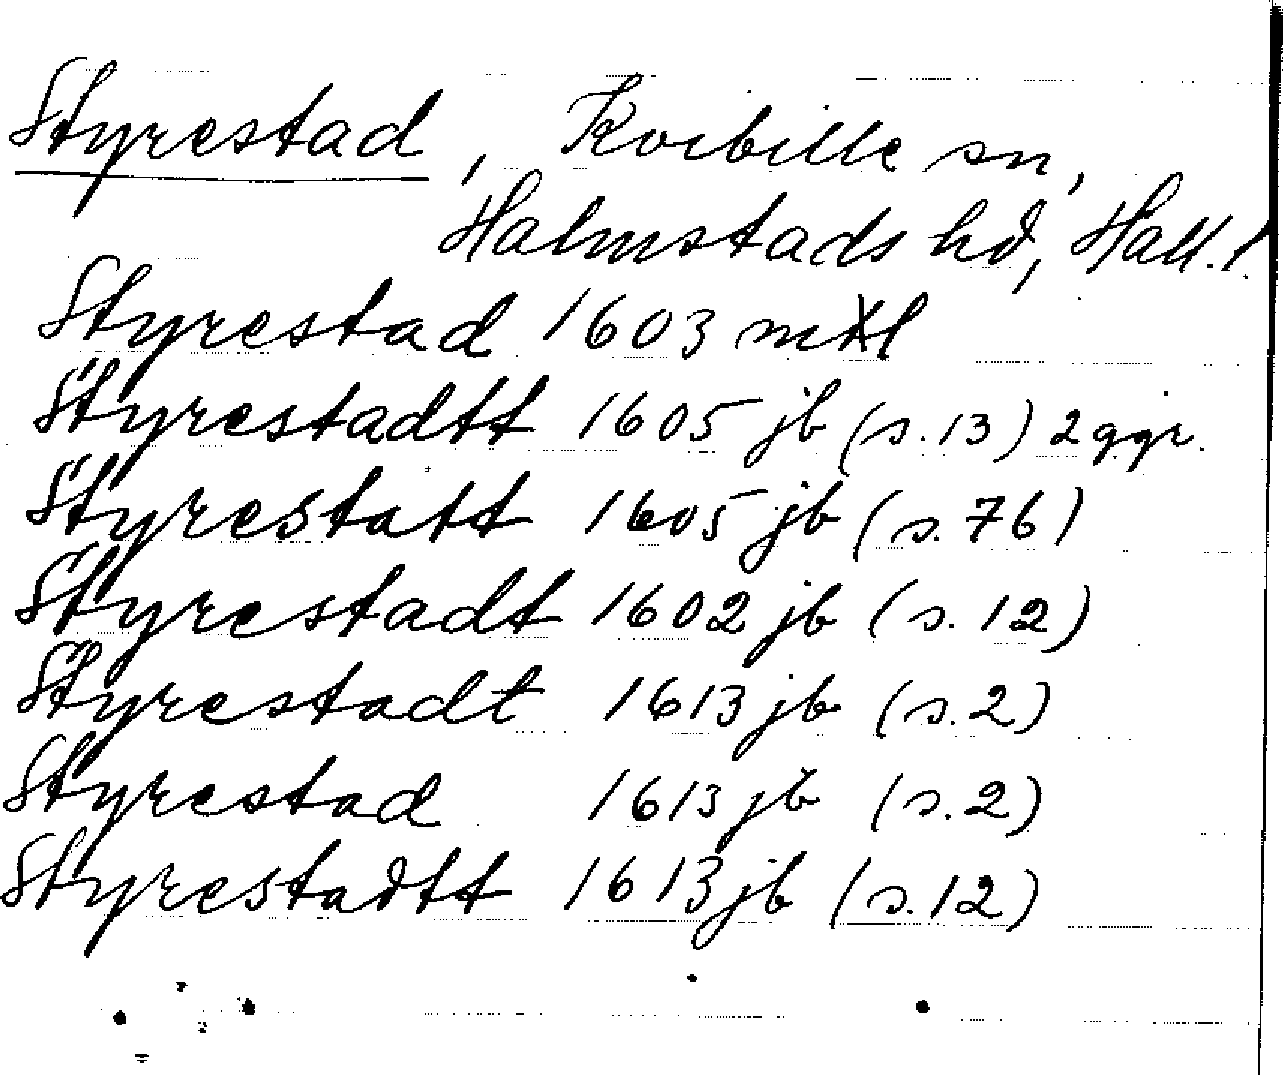 Styrestad, Kvibille sn,
Halmstads hd, Hall. l.
Styrestad 1603 mtl
Styrestadtt 1605 jb (s. 13) 2 ggr.
Styrestatt 1605 jb (s. 76)
Styrestadt 1602 jb (s. 12)
Styrestadt 1613 jb (s. 2)
Styrestad 1613 jb (s. 2)
Styrestadtt 1613 jb (s. 12)